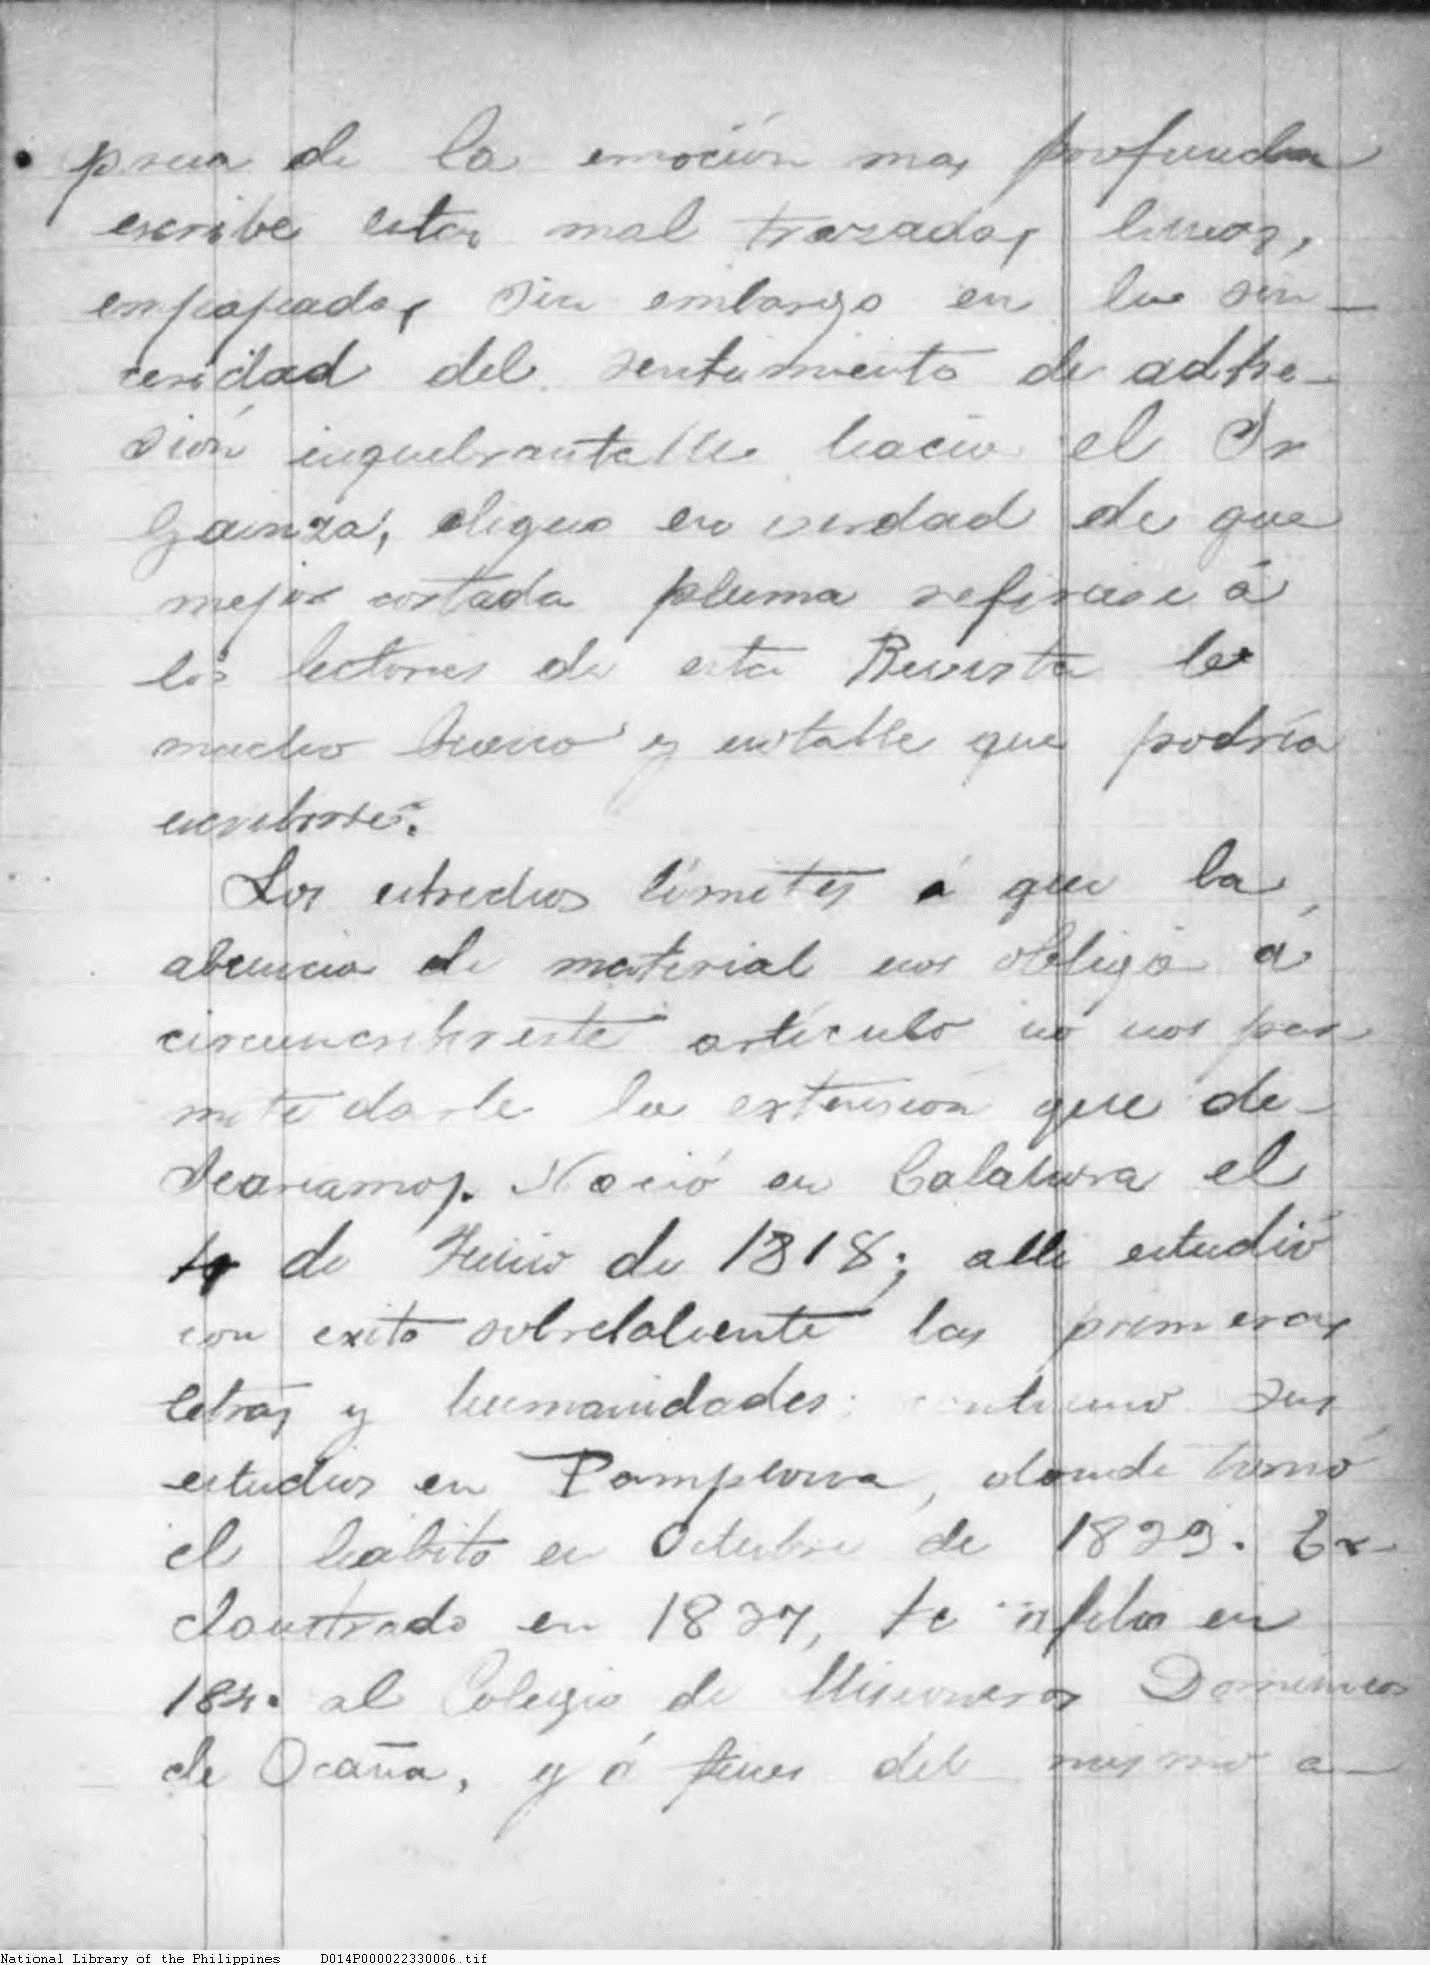 presa de la emoción mas profunda
escribe estas mal trazadas lineas,
empapadas sin embargo en la sin-
ceridad del sentimiento de adhe-
sión inquebrantable hacia el Sr
Gainza, digno en verdad de que
mejor cortada pluma refiriese á
los lectores de esta Revista lo
mucho bueno y notable que podría
escribirse.
Los estrechos límites á que la
abuncia de material nos obliga á
circunscribir este artículo no nos per
mite darle la extensión que de-
seariamos. Nació en Calahorra el
4 de Junio de 1818; alli estudió
con exito sobresaliente las primeras
letras y humanidades; continuo sus
estudios en Pamplona, donde tomó
el habito en Octubre de 1833. Ex-
claustrado en 1837, se afilia en
184. al Colegio de Misioneros Dominicos
de Ocaña, y á fines del mismo a-
National Library of the Philippines D014P000022330006.tif